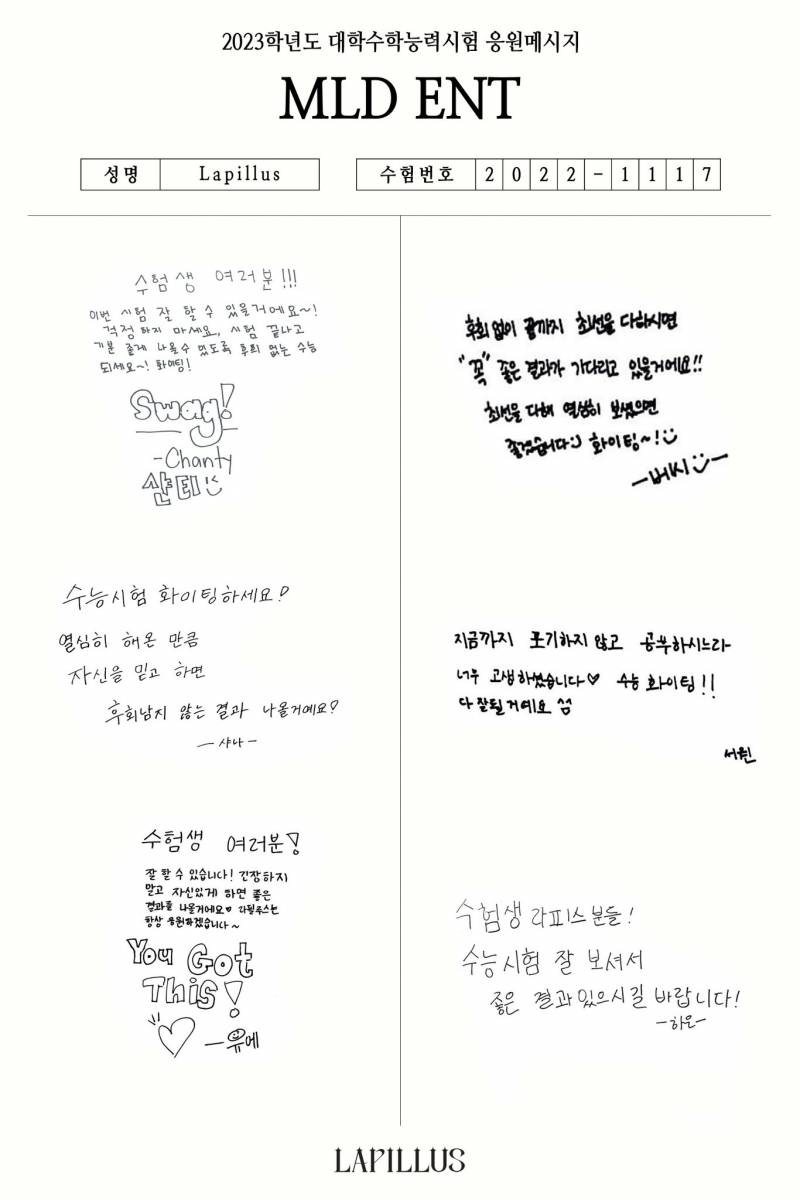 2023학년도 대학수학능력시험 응원메시지
MLD ENT
성명 Lapillus 수험번호 2022-1117
수험생 여러분!!!
이번 시험 잘 할 수 있을거에요~!
걱정하지 마세요, 시험 끝나고
기분 좋게 나올수 있도록 후회 없는 수능
되세요~! 화이팅!
Swag!
-Chanty
샨티
후회 없이 끝까지 최선을 다하시면
"꼭" 좋은 결과가 기다리고 있을거에요!!
최선을 다해 열심히 보셨으면
좋겠습니다:) 화이팅~!:)
-버씨:)-
수능시험 화이팅하세요!
열심히 해온 만큼
자신을 믿고 하면
후회남지 않는 결과 나올거예요!
-샤나-
지금까지 포기하지 않고 공부하시느라
너무 고생하셨습니다♡ 수능 화이팅!!
다 잘될거예요
서원
수험생 여러분!
잘 할 수 있습니다! 긴장하지
말고 자신있게 하면 좋은
결과를 나올거에요♥ 라필루스는
항상 응원하겠습니다~
You Got
This!
♡ -유에
수험생 라피스분들!
수능시험 잘 보셔서
좋은 결과있으시길 바랍니다!
-하은-
LAPILLUS